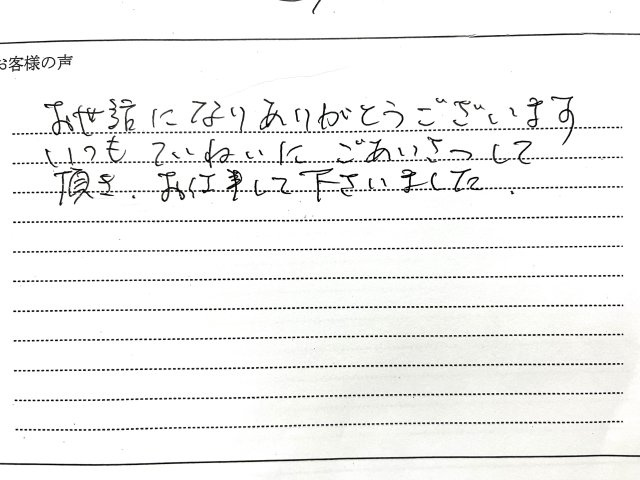 お客様の声
お世話になりありがとうございます
いつもていねいにごあいさつして
頂き、お仕事して下さいました。